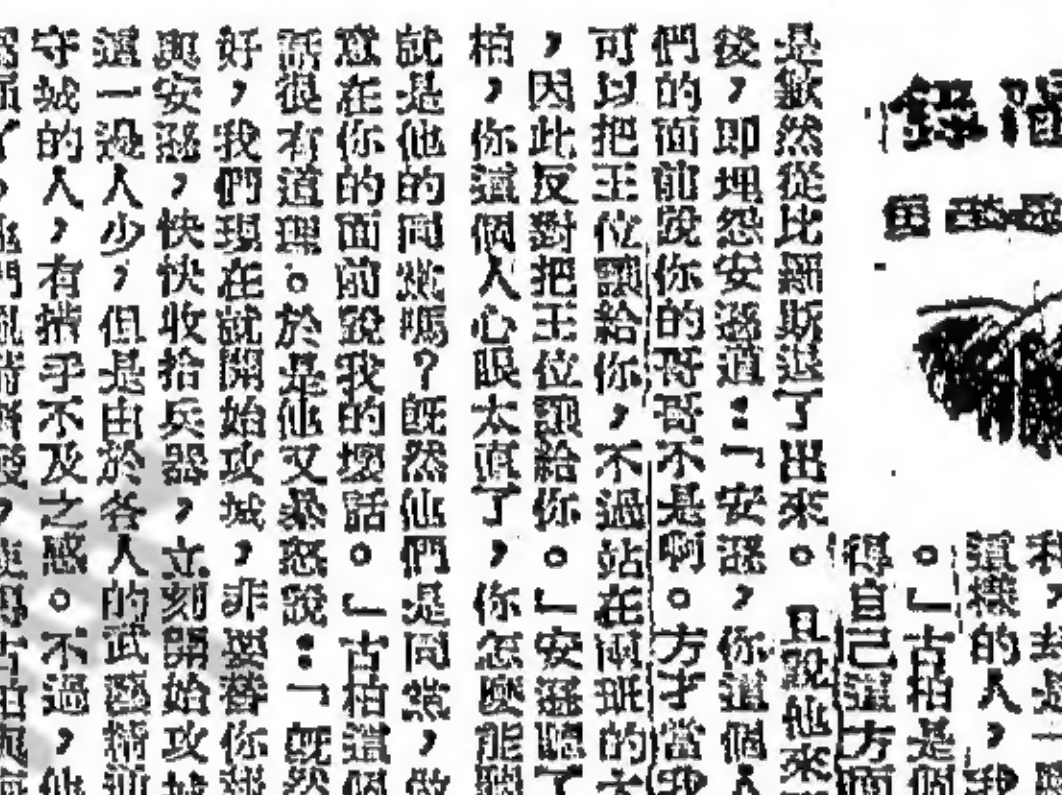 我，去是一
這樣的人，我
。」古柏是個
得自己這方面
是歉然從比羅斯退了出來。且說他來
後，即埋怨安遜道：「安遜，你這個人
們的面前說你的哥哥不是啊。方才當我
可以把王位讓給你，不過站在兩班的大
，因此反對把王位讓給你。」安遜聽了
柏，你這個人心眼太直了，你怎麼能聽
就是他的同黨嗎？既然他們是同黨，做
意在你的面前說我的壞話。」古柏這個
話很有道理。於是他又暴怒說：「既然
好，我們現在就開始攻城，非要替你
與安遜，快快收拾兵器，立刻開始攻城
這一邊人少，但是由於各人的武藝精
守城的人，有措手不及之感。不過，他